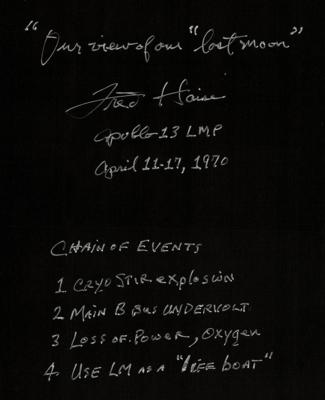 "Our view of our "lost moon"
Fred Haise
Apollo 13 LMP
April 11-17, 1970
CHAIN OF EVENTS
1 CRYO STIR explosion
2 MAIN B BUS UNDERVOLT.
3 LOSS OF POWER, OXYgen
4. USE LM AS A "life boat"